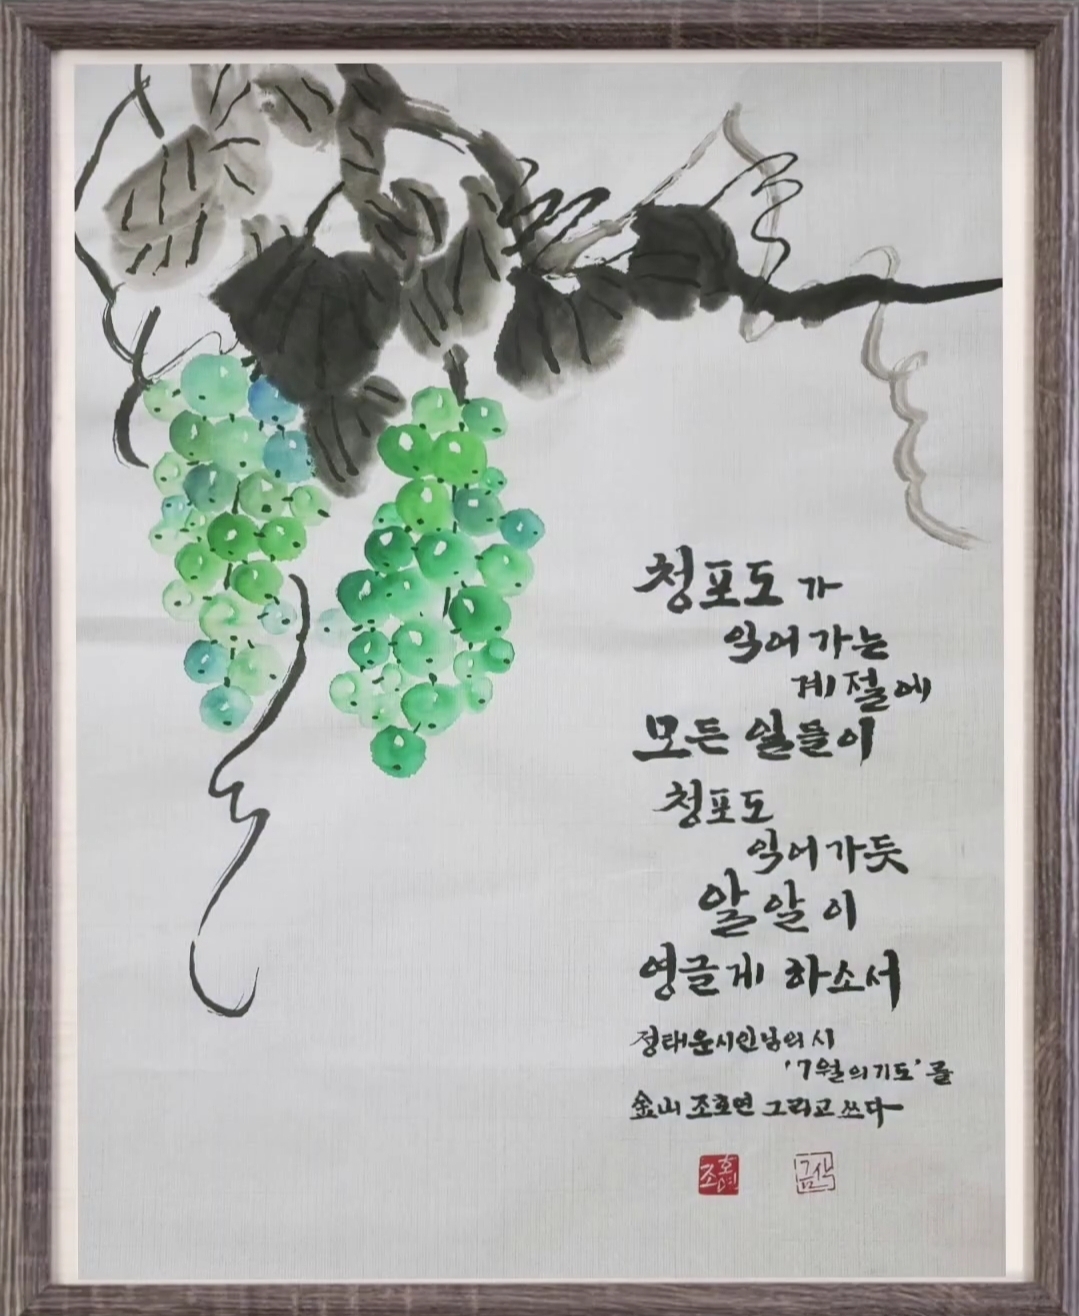 청포도 가
익어 가는
계절에
모든 일들이
청포도
익어가듯
알알이
영글게 하소서
정태운시인님의 시
'7월의기도'를
金山 조호연 그리고 쓰다
조호연
금산